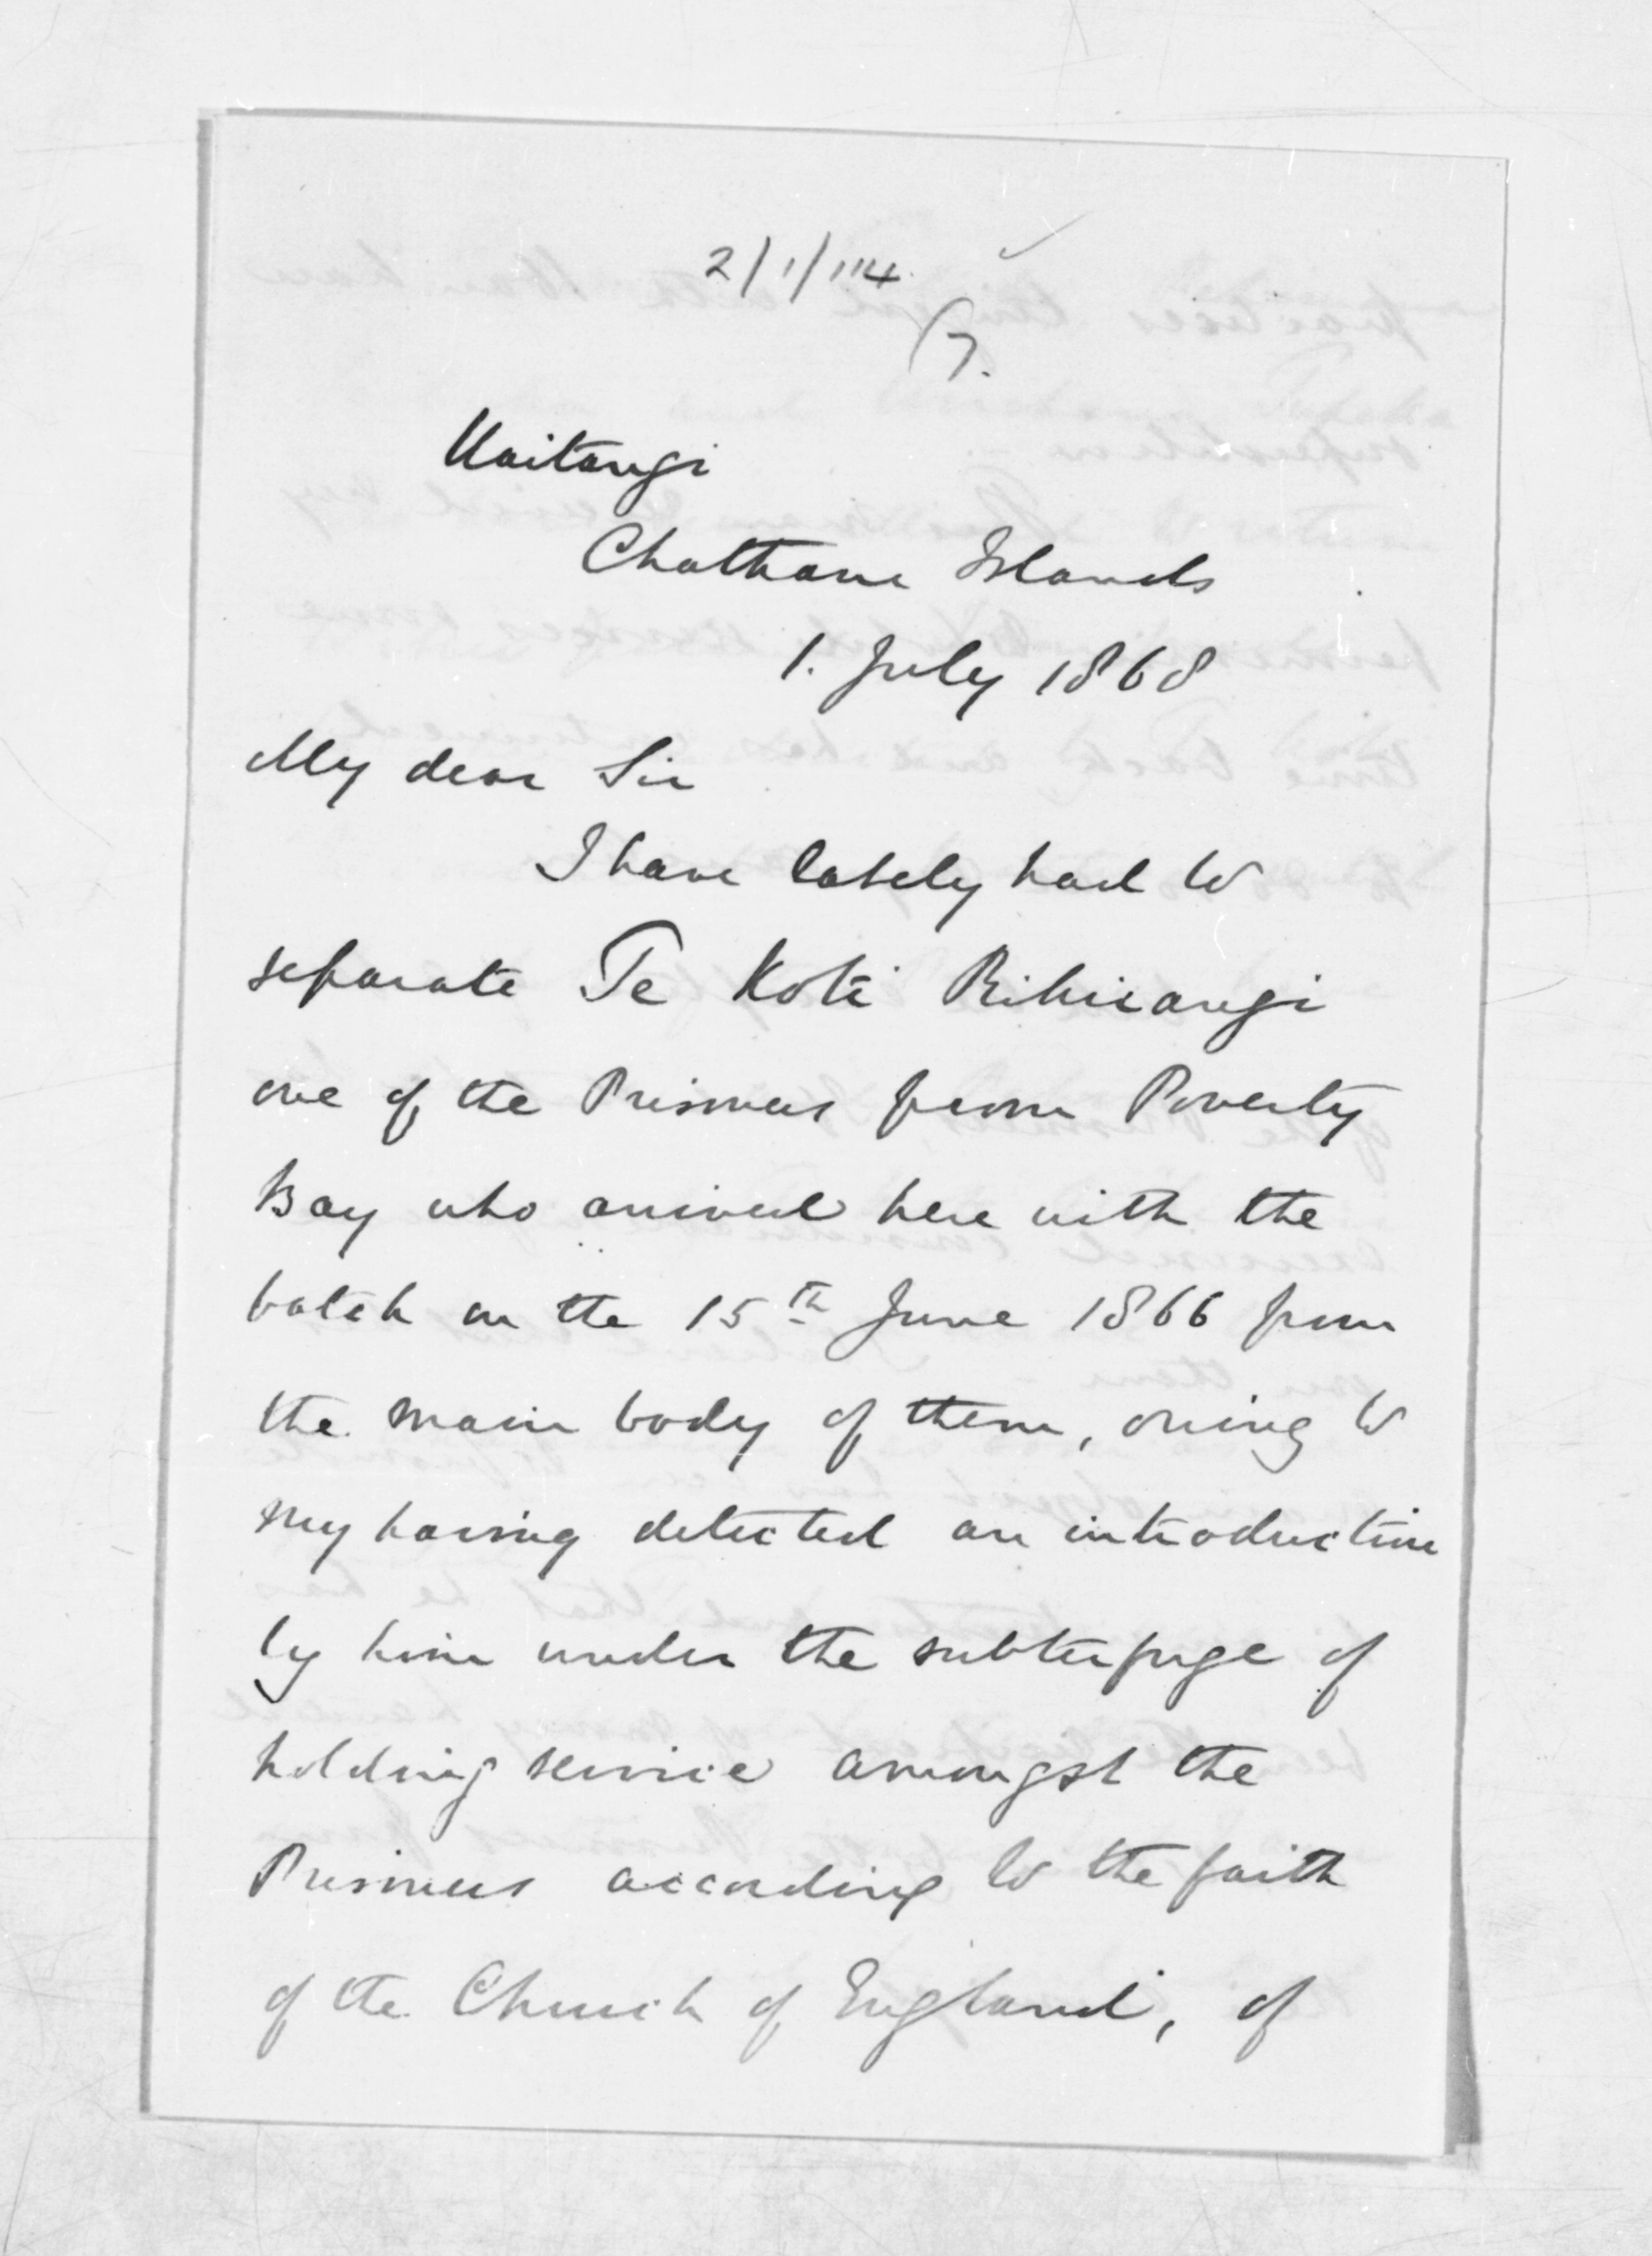 2/1/114
7.
Waitangi
Chatham Islands
1. July 1868
My dear Sir
I have lately had to
separate Te Koti Rikirangi
one of the Prisoners from Poverty
Bay who arrived here with the
batch on the 15th June 1866 from
the main body of them, owing to
my having detected an introduction
by him under the subterfuge of
holding service amongst the
Prisoners according to the faith
of the Church of England, of